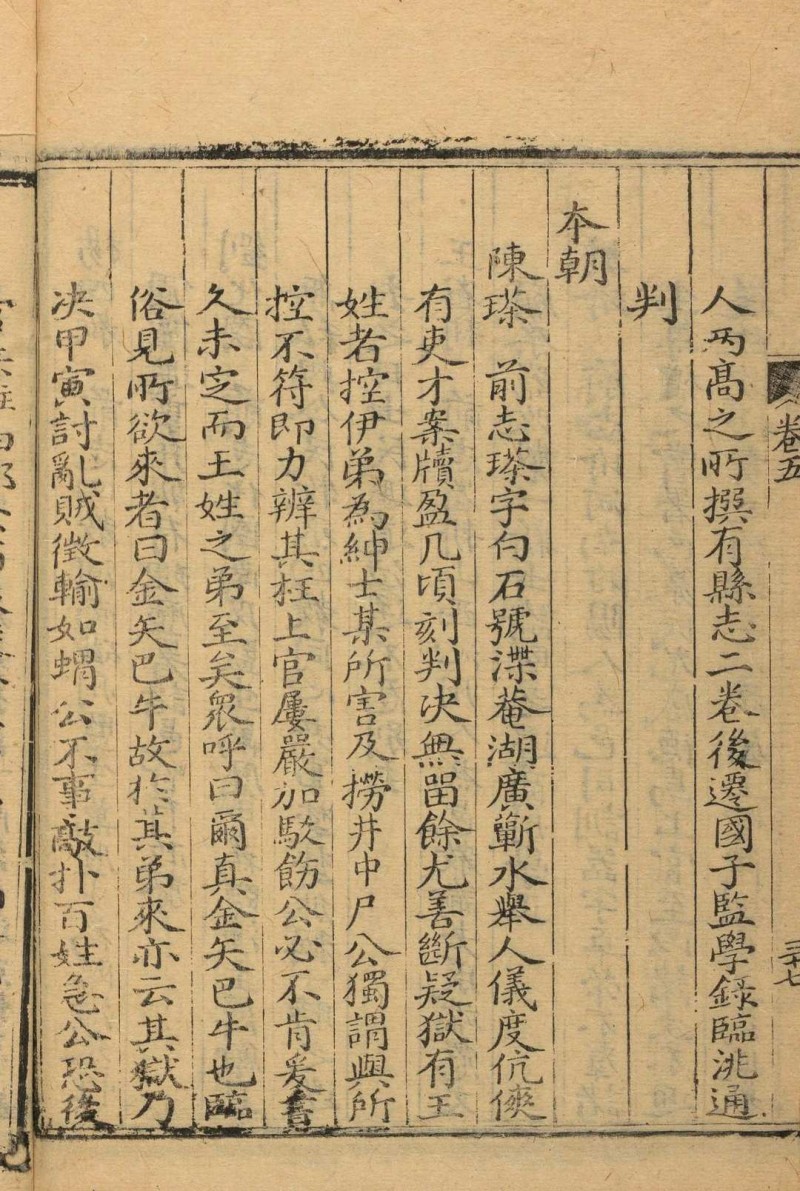 卷五
三十七
人两高之所撰有縣志二卷後遷國子監學錄臨洮通
判
本朝
陳瑹 前志瑹字白石號渫菴湖廣蘄水舉人儀度伉俠
有吏才案牘盈几頃刻判决無留餘尤善斷疑獄有王
姓者控伊弟為紳士某所害及撈井中尸公獨謂與所
控不符即力辨其枉上官屢嚴加駁飭公必不肯爰書
久未定而王姓之弟至矣衆呼曰爾真金矢巴牛也臨
俗見所欲來者曰金矢巴牛故於其弟來亦云其獄乃
决甲寅討亂賊徵輸如蝟公不事敲扑百姓急公恐後